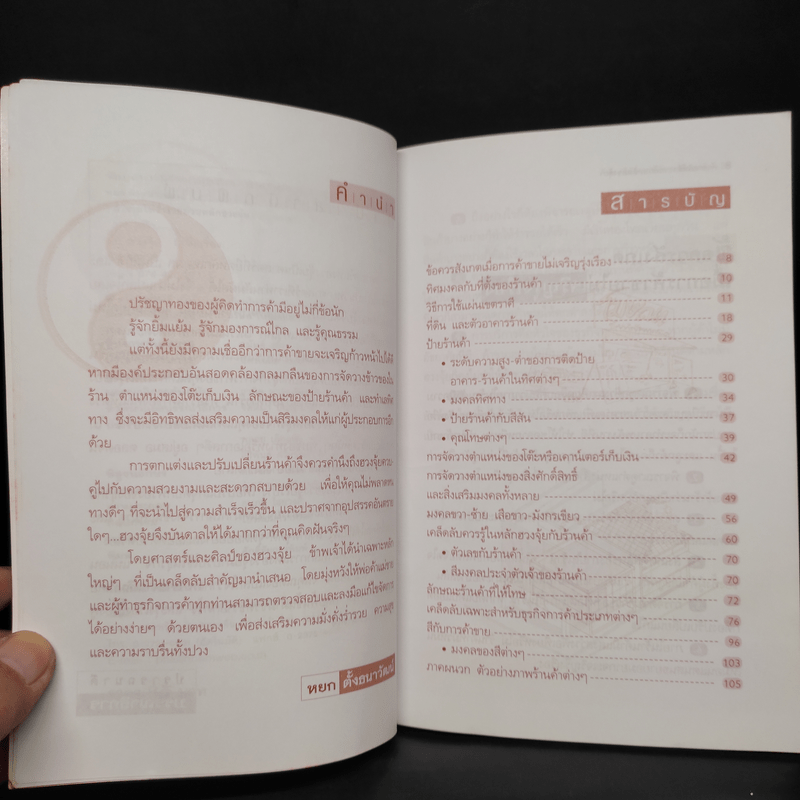 คำนำ
ปรัชญาทองของผู้คิดทำการค้ามีอยู่ไม่กี่ข้อนัก
รู้จักยิ้มแย้ม รู้จักมองการณ์ไกล และรู้คุณธรรม
แต่ทั้งนี้ยังมีความเชื่ออีกว่าการค้าขายจะเจริญก้าวหน้าไปได้ดี
หากมีองค์ประกอบอันสอดคล้องกลมกลืนของการจัดวางข้าวของใน
ร้าน ตำแหน่งของโต๊ะเก็บเงิน ลักษณะของป้ายร้านค้า และทำเลทิศ
ทาง ซึ่งจะมีอิทธิพลส่งเสริมความเป็นสิริมงคลให้แก่ผู้ประกอบการอีก
ด้วย
การตกแต่งและปรับเปลี่ยนร้านค้าจึงควรคำนึงถึงฮวงจุ้ยควบ
คู่ไปกับความสวยงามและสะดวกสบายด้วย เพื่อให้คุณไม่พลาดหน
ทางดีๆ ที่จะนำไปสู่ความสำเร็จเร็วขึ้น และปราศจากอุปสรรคอันตราย
ใดๆ...ฮวงจุ้ยจึงบันดาลให้ได้มากกว่าที่คุณคิดฝันจริงๆ
โดยศาสตร์และศิลป์ของฮวงจุ้ย ข้าพเจ้าได้นำเฉพาะหลัก
ใหญ่ๆ ที่เป็นเคล็ดลับสำคัญมานำเสนอ โดยมุ่งหวังให้พ่อค้าแม่ขาย
และผู้ทำธุรกิจการค้าทุกท่านสามารถตรวจสอบและลงมือแก้ไขจัดการ
ได้อย่างง่ายๆ ด้วยตนเอง เพื่อส่งเสริมความมั่งคั่งร่ำรวย ความสุข
และความราบรื่นทั้งปวง
หยก ตั้งธนาวัฒน์
สารบัญ
ข้อควรสังเกตเมื่อการค้าขายไม่เจริญรุ่งเรือง 8
ทิศมงคลกับที่ตั้งของร้านค้า 10
วิธีการใช้แผ่นเขตราศี 11
ที่ดิน และตัวอาคารร้านค้า 18
ป้ายร้านค้า 29
• ระดับความสูง-ต่ำของการติดป้าย
อาคาร-ร้านค้าในทิศต่างๆ 30
• ทิศมงคลต่างๆ 34
• ป้ายร้านค้ากับสีสัน 37
• คุณโทษต่างๆ 39
การจัดวางตำแหน่งของโต๊ะหรือเคาน์เตอร์เก็บเงิน 42
การจัดวางตำแหน่งของสิ่งศักดิ์สิทธิ์
และสิ่งเสริมมงคลทั้งหลาย 49
มงคลขวา-ซ้าย เสือขาว-มังกรเขียว 56
เคล็ดลับควรรู้ในหลักฮวงจุ้ยกับร้านค้า 60
• ตัวเลขกับร้านค้า 70
• สีมงคลประจำตัวเจ้าของร้านค้า 70
ลักษณะร้านค้าที่ให้โทษ 72
เคล็ดลับเฉพาะสำหรับธุรกิจการค้าประเภทต่างๆ 76
สีกับการค้าขาย 96
• มงคลของสีต่างๆ 103
ภาคผนวก ตัวอย่างภาพร้านค้าต่างๆ 105